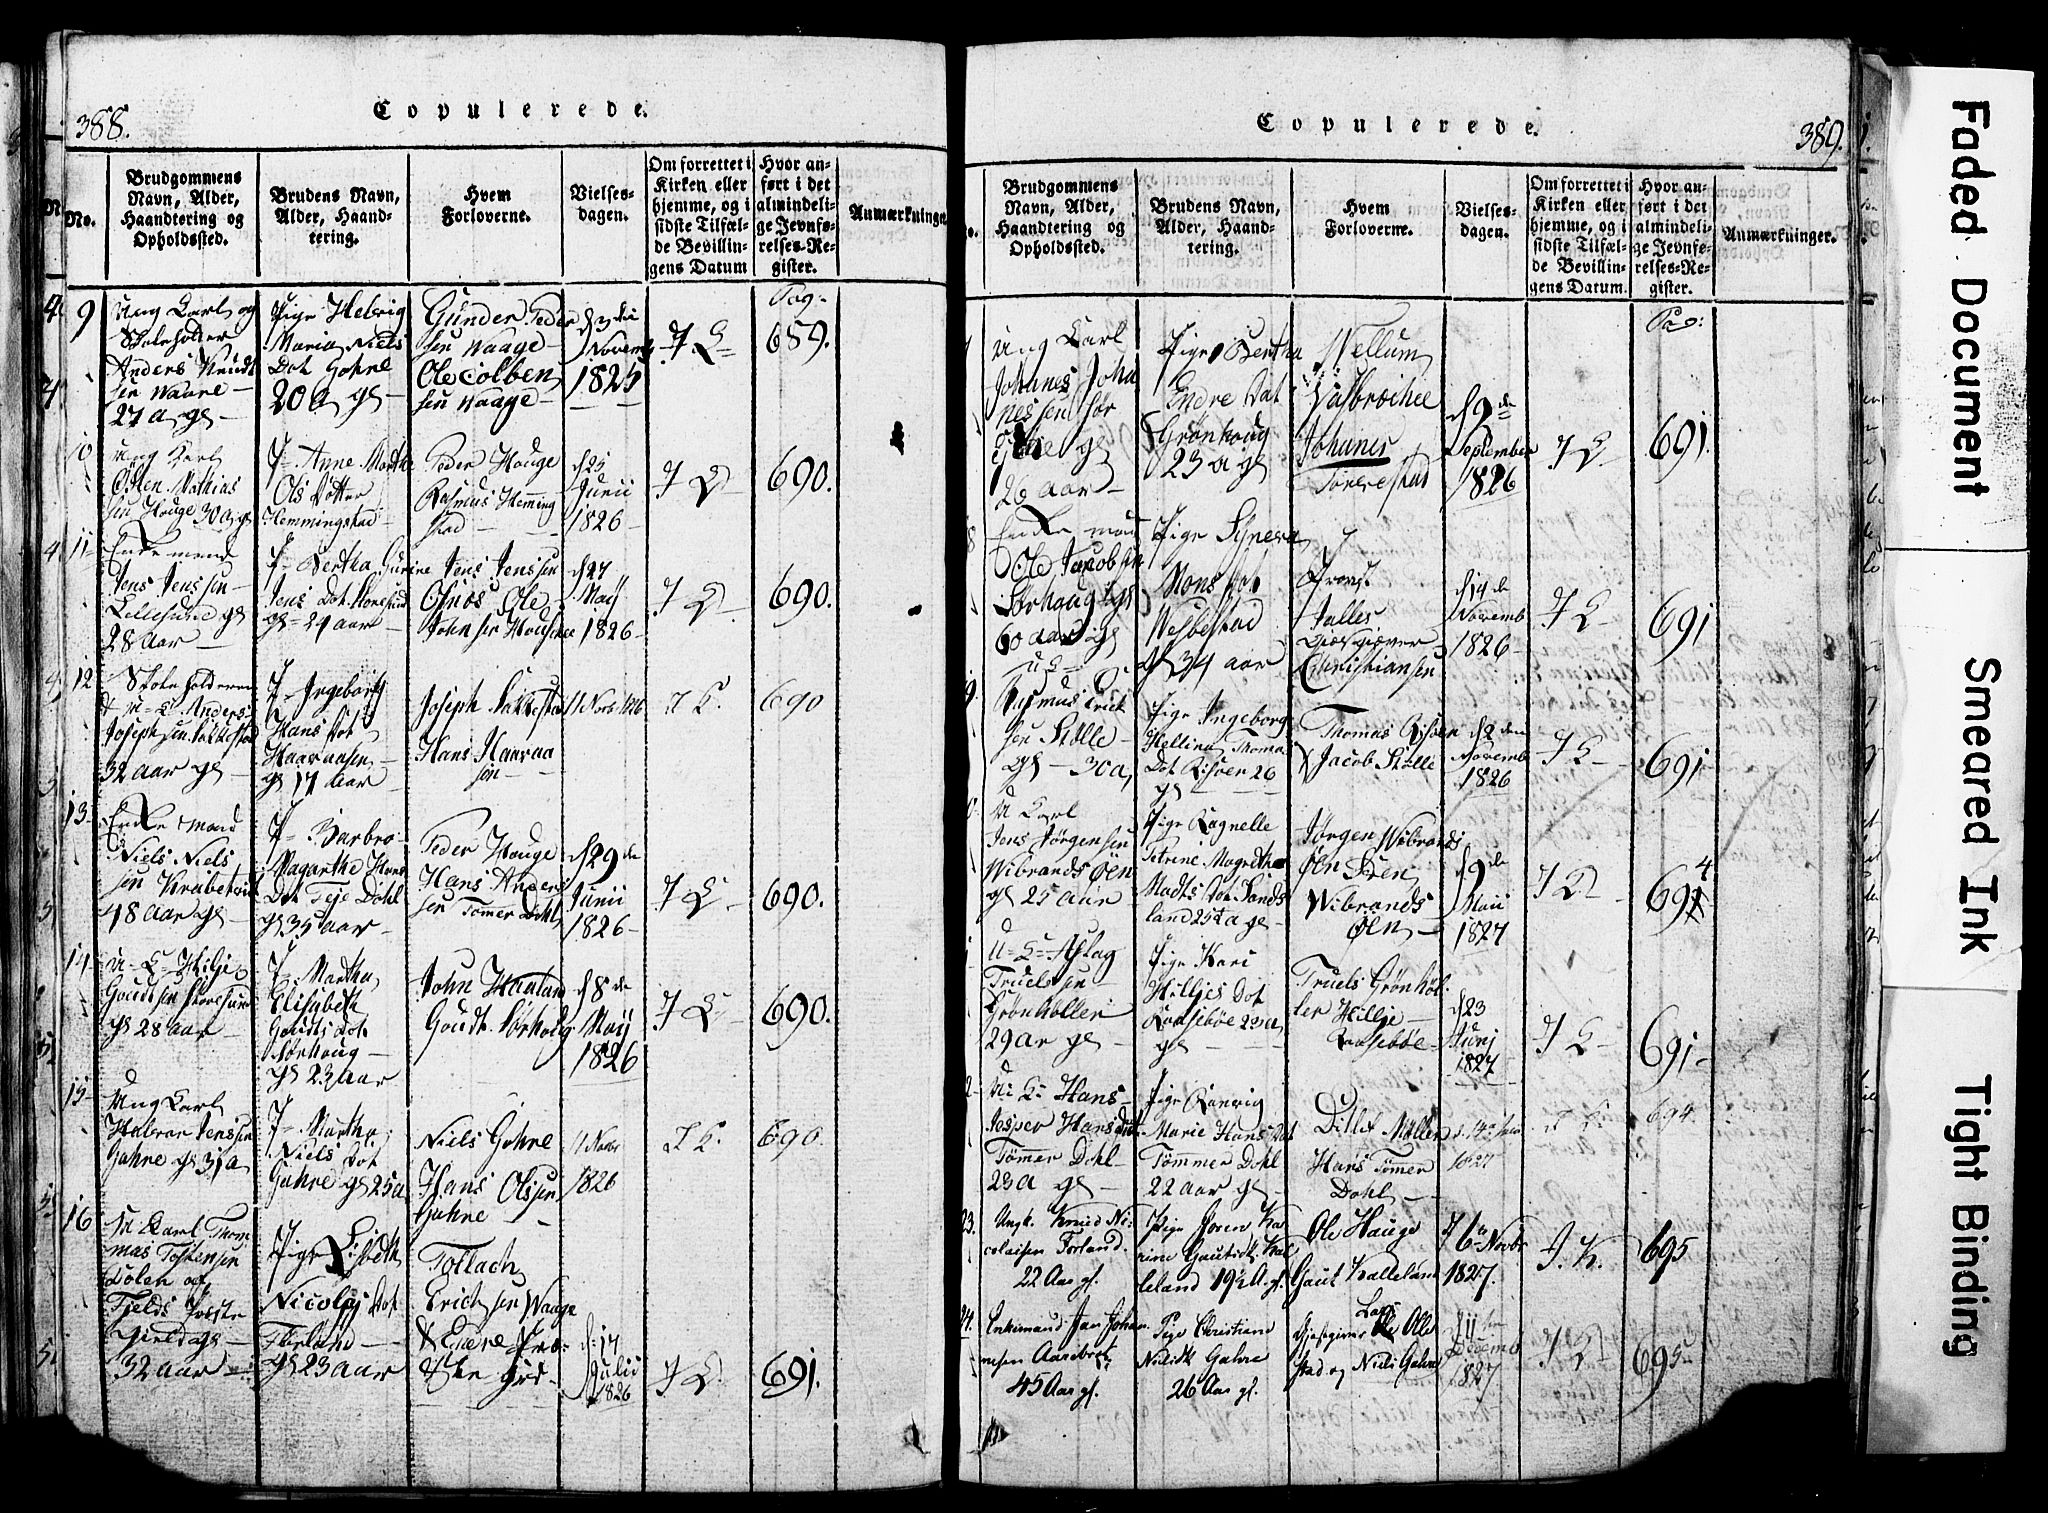 388.
Copulerede.
No.
Brudgommens
Navn, Alder,
Haandtering og
Opholdssted.
Brudens Navn,
Alder, Haand-
tering.
Hvem
Forloverne.
Vielses-
dagen.
Om forrettet i
Kirken eller
hjemme, og i
sidste Tilfæl-
de Bevillin-
gens Datum
Hvor an-
ført i det
almindeli-
ge Jevnfø-
relses-Re-
gister.
Anmærkninger
9
Ung Karl og
Skoleholder
Anders Knudt
sen Waare
27 a gl
Pige Helvig
Maria Niels
Dot Gohne
20 a gl
Gunder Peder
sen Waage
Ole Colben
sen Waage
d 3 die
Novemb
1825
I K
Pag.
689.
10
Ung Karl
Osten Mathias
sen Houge 30 a gl
P Anne Martha
Ols Dotter
Hemmingstad
Peder Houge
Rasmus Hemming
stad
d 25
Junii
1826
I K
690.
11
Enke mand
Jens Jenssen
Lillesund gl
28 Aar
P Bertha Gurine
Jens Dot Storesund
gl 21 aar
Jens Jenssen
Ole
Johnsen Houske
d 27
Maij
1826
I K
690.
12
Skoleholderen
Anders
Josephsen Sukkestad
32 aar gl
P Ingeborg
Hans Dot
Haavaasen
gl 17 Aar
Joseph Sukkestad
Hans Haavaa
sen
11 Novb 1826
I K.
690
13
Enke mand
Niels Niels
sen Krabetvei
48 Aar gl
P Barbro
Magarthe Hans
Dot Teje Dohl
gl 35 aar
Peder Houge
Hans Anders
sen Tømer Dohl
d 29 de
Junii
1826
I K
690.
14
U K Hilje
Goudtsen Storesund
gl 28 aar
P Martha
Elisabeth
Goudts Dot
Sørhoug
gl 23 aar
John Haaland
Goudt Sørhoug
d 8 de
Maij
1826
I K
690.
15
Ung Karl
Halvor Jenssen
Gahne gl 31 a
P Martha
Niels Dot
Gahne gl 25 a
Niels Gohne
Hans Olssen
Gahne
11 Novbr
1826
I K.
690.
16
U Karl Thom
mas Tostensen
Dolen og
Fjelds Præste
32 aar
Pige Lisbeth
Nicolai Dot
Førland
gl 23 aar
Tollach
Erichsen Waage
d: 17
Julii
1826
I K
691.
389.
Copulerede.
Brudgommens
Navn, Alder,
Haandtering og
Opholdssted.
Brudens Navn,
Alder, Haand-
tering.
Hvem
Forloverne.
Vielses-
dagen.
Om forrettet i
Kirken eller
hjemme, og i
sidste Tilfæl-
de Bevillin-
gens Datum.
Hvor an-
ført i det
almindeli-
ge Jevnfø-
relses-Re-
gister.
Anmærkninger.
Ung Karl
Johanes Joha
nessen Sør
gl
26 Aar
Pige Bertha
Endre Dat
Grønhoug
23 a gl
Wellum
Johanes
Torrestad
d 9 de
September
1826
I K
Pag:
691.
8
Enke mand
Ole Jacobsen
Sørhaug
60 aar gl
Pige Synneva
Mons Dat
Wesbestad
gl 34 aar
Provst
Talles
Gjæstgiver
Christiansen
d 14 de
Novemb
1826
I K
691
9.
U K
Rasmus Erick
sen Stolle
gl 30 a
Pige Ingeborg
Hellina Thomas
Dot Risøen 26
gl
Thomas Risøen
Jacob Stolle
d 2 den
Novemb
1826
I K
691
U Karl
Jens Jørgensen
Wibrands Øen
gl 25 aar
Pige Ragnelle
Petrine Magretha
Madts Dot Sands
land 25 a gl
Jørgen Wibrands
Øen Sven
Wibrands
Øen
d 9 de
Maij
1827
I K
694
U K Aslag
Truelssen
Grønhøller
29 ar gl
Pige Kari
Hilljes Dot
Kaasebøe 23 a
gl
Truels Grønhøl
ler Hillje
Kaasebøe
d 23
Junj
1827
I K
691
2
U: K: Hans
Jesper Hanssen
Tømmer Dohl
23 a gl
Pige Ranvig
Marie Hans Dot
Tømmer Dohl
22 aar gl
Ditlef Møller
Hans Tømer
Dohl
1827
I K
694
23.
Ungk. Knud Ni-
colaisen Førland.
22 Aar gl.
Pige Joren Ka
rine Gautsdt. Kal
leland 19½ A. gl.
Ole Hauge
Gaut Kalleland
d 6te Novbr
1827.
I. K.
695
24.
Enkemand Jan Johan
nesen Aarebrot
45 Aar gl.
Pige Christiane
Nielsdt. Gahre
26 Aar gl.
Lars
Gjæstgiver Olle
stad og Niels Gahre
d 11te
Decemb
1827
I K
695
Faded Document
Smeared Ink
Tight Binding